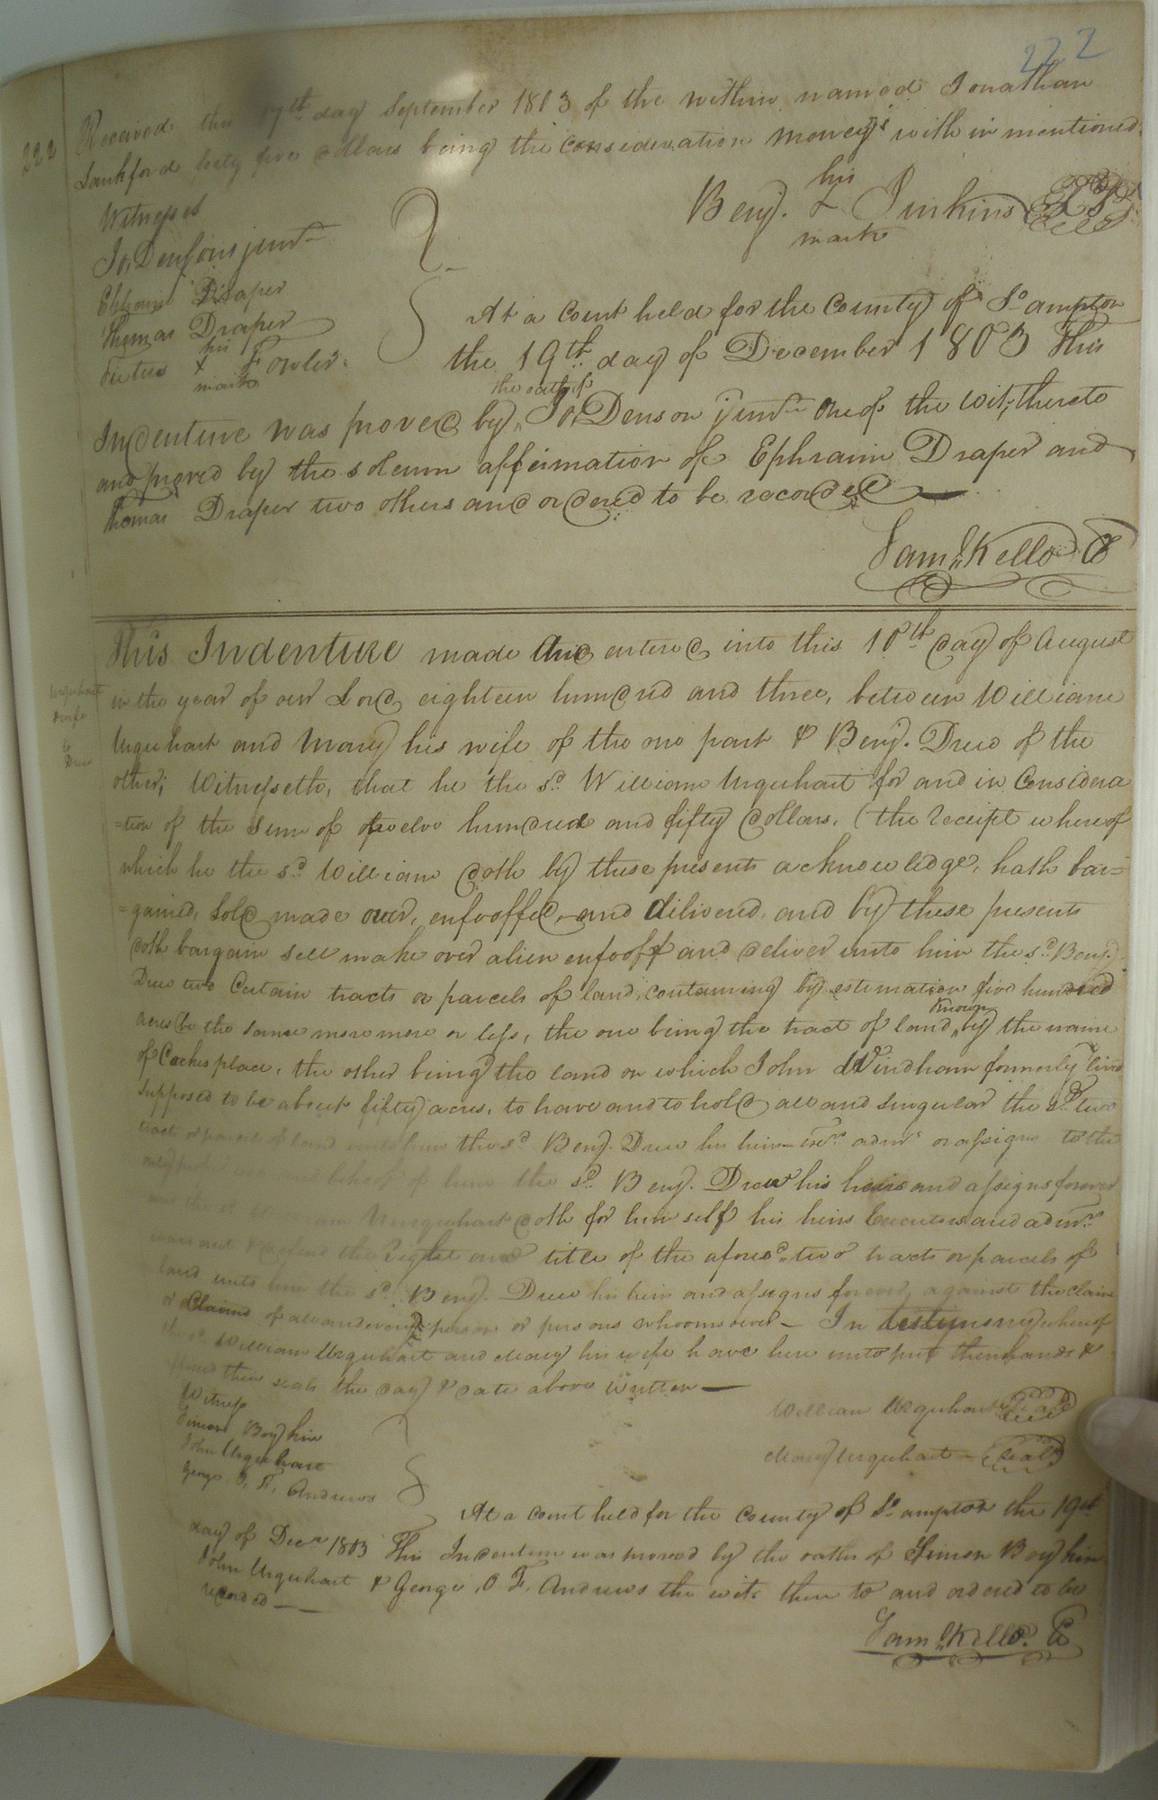 222
222
Received the 17th day September 1803 of the within named Jonathan
Lankford forty five dollars being the consideration moneys with in mentioned.
Witnesses
Jo. Densons junr
Ephraim Draper
Thomas Draper
his
Fowler.
mark
his
Benj. x Jinkins
mark
At a Court held for the County of So. ampton
the 19th day of December 1803 This
the oath of
Indenture was proved by Jo. Denson junr one of the wits. thereto
and proved by the solemn affirmation of Ephraim Draper and
Thomas Draper two others and ordered to be recorded
Saml. Kello C
This Indenture made and entered into this 10th day of August
Urquhart
& wife
to
Drew
in the year of our Lord, eighteen hundred and three, between William
Urquhart and Mary his wife of the one part & Benj. Drew of the
other; Witnesseth, that he the sd. William Urquhart for and in Considera
=tion of the sum of twelve hundred and fifty dollars, (the receipt whereof
which he the sd. William doth by these presents acknowledge, hath bar=
=gained, sold made over, enfeoffed, and delivered, and by these presents
doth bargain sell make over alien enfeoff and deliver unto him the sd. Benj.
Drew two Certain tracts or parcels of land, containing by estimation five hundred
known
acres be the same more more or less, the one being the tract of land by the name
of Cockes place, the other being the land on which John Windham formerly lived
supposed to be about fifty acres, to have and to hold all and singular the sd. two
tract or parcel of land unto him the sd. Benj. Drew his heirs exrs. admrs or assigns to the
only behoof of him the sd. Benj. Drew his heirs and assigns forever
and the sd. William Urquhart doth for himself his heirs Executors and admrs.
warrant & defend the right and title of the aforesd. two tracts or parcels of
land unto him the sd. Benj. Drew his heirs and assigns forever, against the claim
or Claims of all and every person or persons whomsoever - In testimony whereof
the sd. William Urquhart and Mary his wife have here unto put their hands &
fixed their seals the day & date above written —
Witness
Simon Boykin
John Urquhart
George O. F. Andrews
William Urquhart Seal
Mary Urquhart - Seal
At a court held for the County of So. ampton the 19th
day of Decr 1803 This Indenture was proved by the oaths of Simon Boykin
John Urquhart & George O. F. Andrews the wits there to and ordered to be
recorded —
Saml. Kello. C